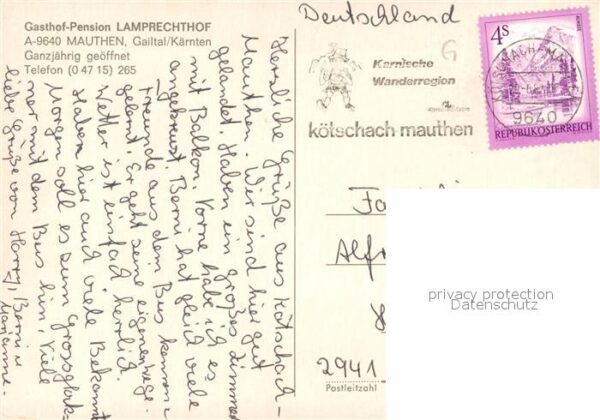 Gasthof-Pension LAMPRECHTHOF
A-9640 MAUTHEN, Gailtal/Kärnten
Ganzjährig geöffnet
Telefon (0 47 15) 265
Herzliche Grüße aus Kötschach-
Mauthen. Wir sind hier gut
gelandet. Haben ein großes Zimmer
mit Balkon. Vorne habe ich es
angekreuzt. Berni hat gleich viele
Freunde aus dem Bus kennen-
gelernt. Er geht seine eigenen Wege.
Wetter ist einfach herrlich.
Haben hier auch viele Bekannte
Morgen soll es zum Grossglock-
ner mit dem Bus hin. Viele
liebe Grüße von Harry, Berni u
Marianne.
Deutschland
Karnische
Wanderregion
kötschach mauthen
4S
9640
REPUBLIK ÖSTERREICH
Fa
Alfr
2941
Postleitzahl
privacy protection
Datenschutz